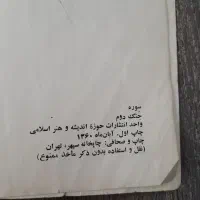 سوره
جنگ دوم
واحد انتشارات حوزهٔ اندیشه و هنر اسلامی
چاپ اول، آبان‌ماه ۱۳۶۰
چاپ و صحافی: چاپخانه سپهر، تهران
(نقل و استفاده بدون ذکر مأخذ ممنوع)